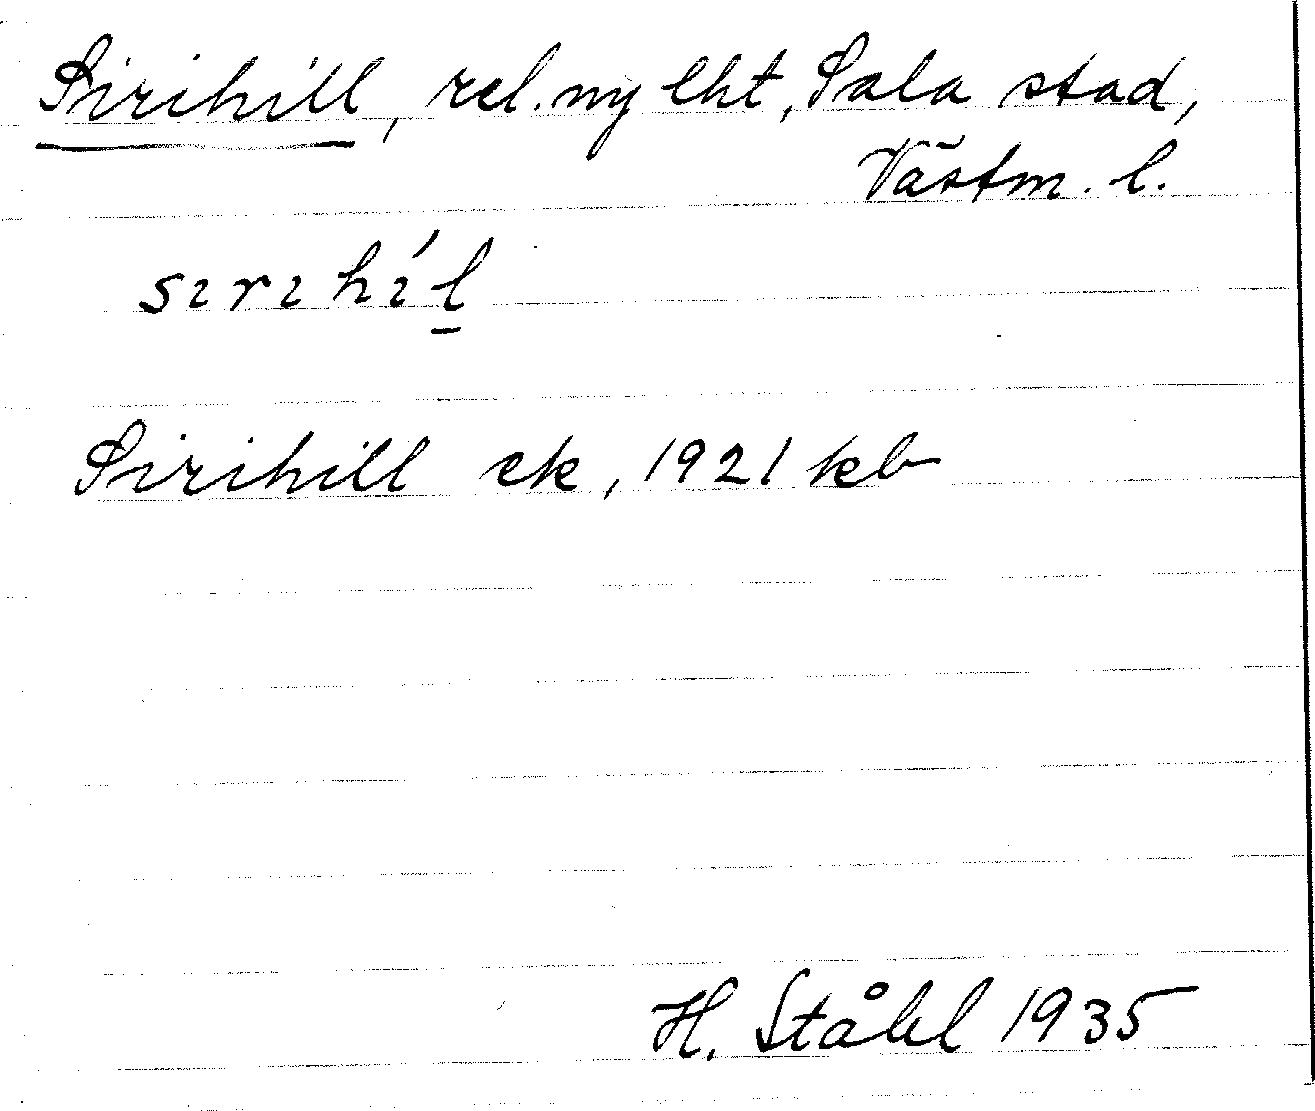 Sirihill, rel. ny lht, Sala stad,
Västm. l.
sırıhı́l̲
Sirihill ek, 1921 kb
H. Ståhl 1935